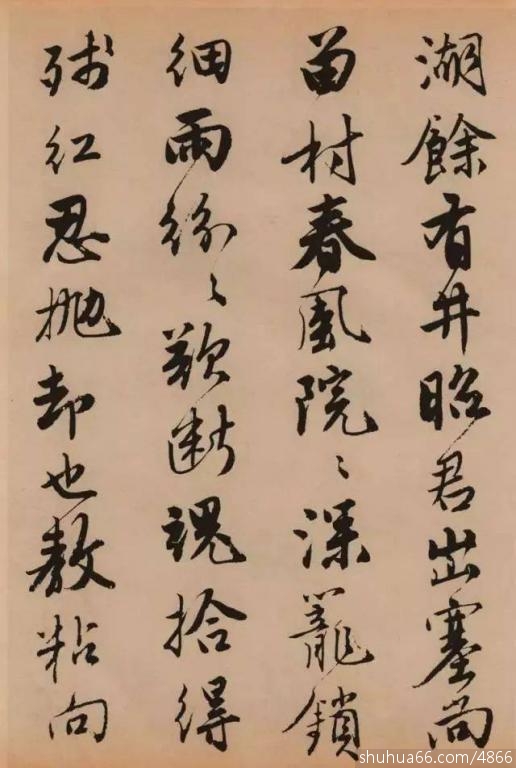 湖餘有井昭君出塞尚
留村春風院〻深籠鎖
細雨紛〻欲斷魂拾得
殘紅忍拋却也教粘向
shuhua66.com/4866